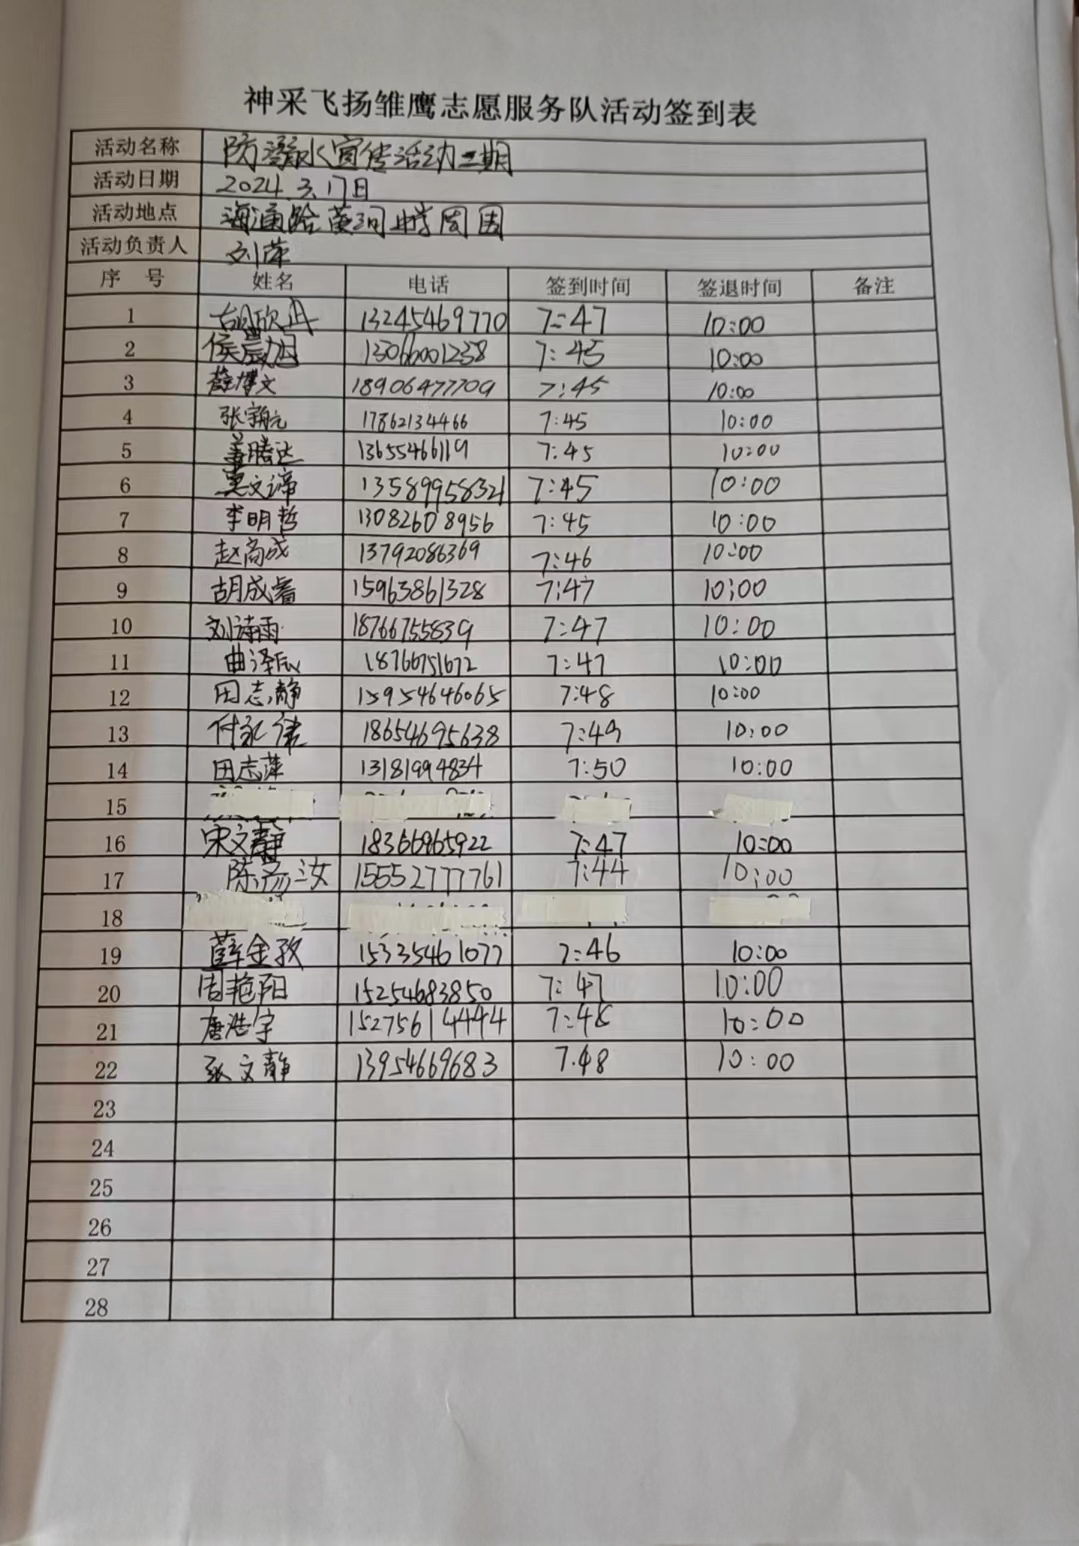 神采飞扬雏鹰志愿服务队活动签到表
活动名称 防溺水宣传活动二期
活动日期 2024.3.17日
活动地点 海通路黄河中学周围
活动负责人 刘萍
序号 姓名 电话 签到时间 签退时间 备注
1 胡欣 13245469770 7:47 10:00
2 侯晨旭 13066001238 7:45 10:00
3 薛博文 18906477709 7:45 10:00
4 张翰元 17862134466 7:45 10:00
5 姜腾达 13655466119 7:45 10:00
6 文谛 13589958321 7:45 10:00
7 李明哲 13082608956 7:45 10:00
8 赵高成 13792086369 7:46 10:00
9 胡成睿 15963861328 7:47 10:00
10 刘诗雨 18766755839 7:47 10:00
11 曲泽 18766751672 7:47 10:00
12 田志静 15954646065 7:48 10:00
13 付 18654695638 7:49 10:00
14 田志萍 13181994834 7:50 10:00
15
16 宋文静 18366965922 7:47 10:00
17 陈汝 15552777761 7:44 10:00
18
19 薛金孜 15335461077 7:46 10:00
20 周艳阳 15254683850 7:47 10:00
21 唐浩宇 15275614444 7:48 10:00
22 张文静 13954669683 7.48 10:00
23
24
25
26
27
28